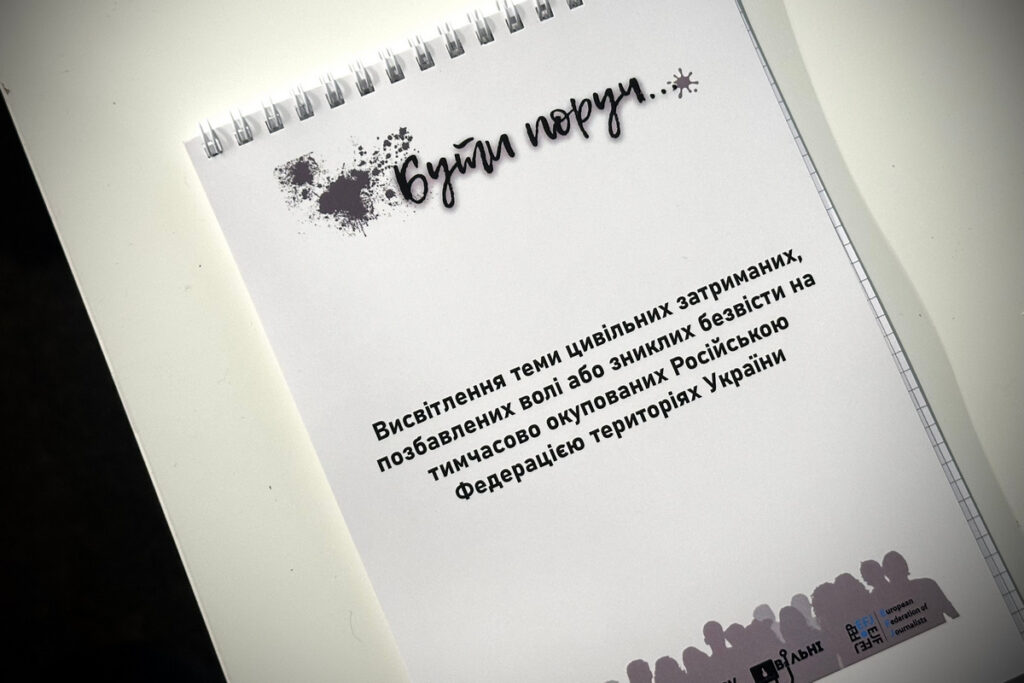 Бути поруч...
Висвітлення теми цивільних затриманих,
позбавлених волі або зниклих безвісти на
тимчасово окупованих Російською
Федерацією територіях України
ВІЛЬНІ
European
Federation of
Journalists